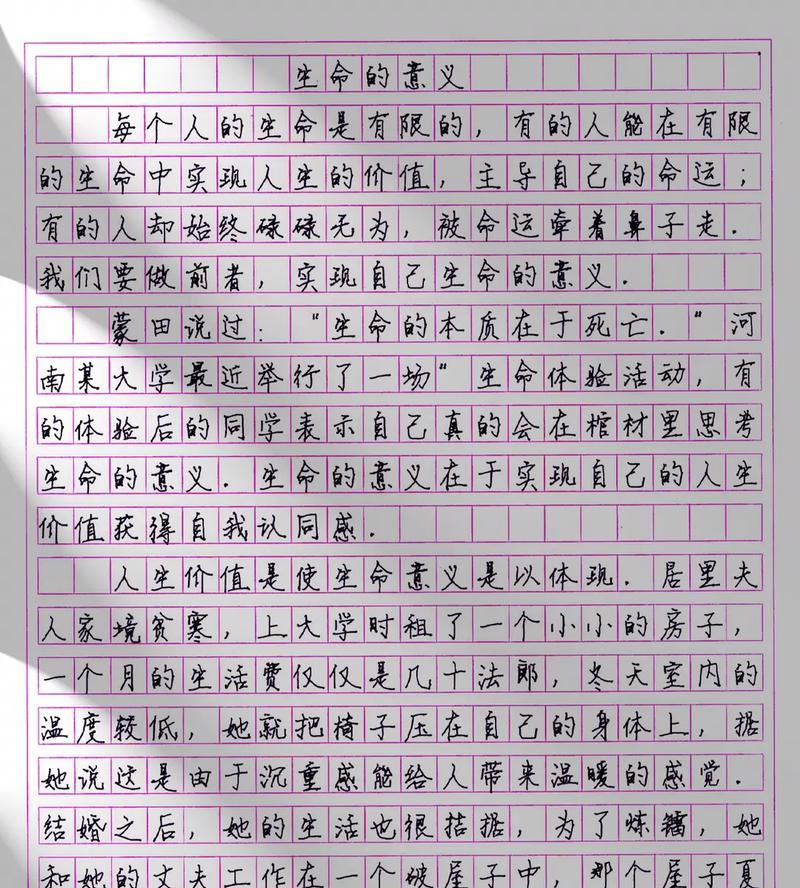 生命的意义
每个人的生命是有限的，有的人能在有限
的生命中实现人生的价值，主导自己的命运；
有的人却始终碌碌无为，被命运牵着鼻子走.
我们要做前者，实现自己生命的意义.
蒙田说过："生命的本质在于死亡."河
南某大学最近举行了一场"生命体验活动，有
的体验后的同学表示自己真的会在棺材里思考
生命的意义.生命的意义在于实现自己的人生
价值获得自我认同感.
人生价值是使生命意义是以体现.居里夫
人家境贫寒，上大学时租了一个小小的房子，
一个月的生活费仅仅是几十法郎，冬天室内的
温度较低，她就把椅子压在自己的身体上，据
她说这是由于沉重感能给人带来温暖的感觉.
结婚之后，她的生活也很拮据，为了炼镭，她
和她的丈夫工作在一个破屋子中，那个屋子夏